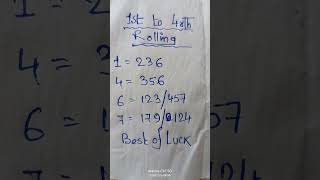 1st to 4th
Rolling
1 = 236
4 = 356
6 = 123/457
7 = 179/124
Best of Luck